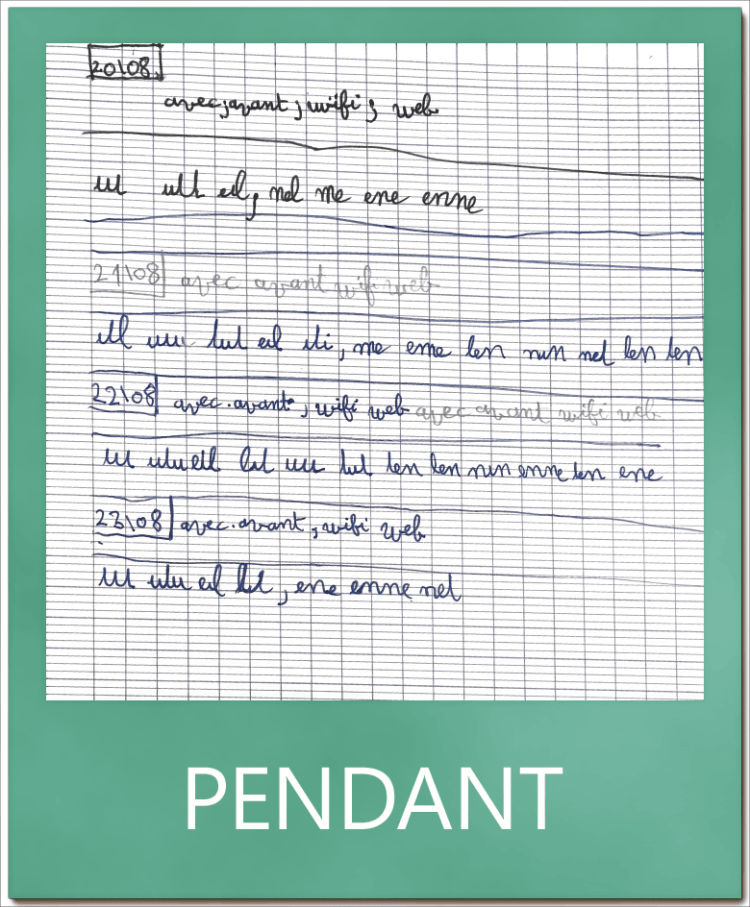 20\08
avec, avant, wifi, web
ul ult eul, nel me ene enne
21\08 avec avant wifi web
ell uuu lul eul iti, me eme len nun nel len len
22\08 avec avant, wifi web avec avant wifi web
ul ulu ell lul uu lul len len nun enne len ene
23\08 avec avant, wifi web
ul ulu eul lul, ene enne nel
PENDANT